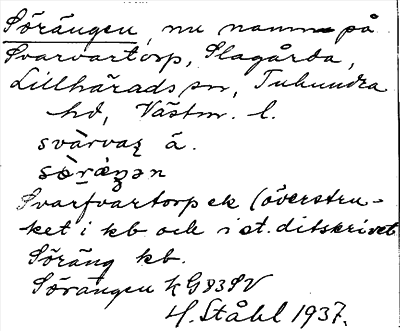 Sörängen, nu namn på
Svarvartorp, Slagårda,
Lillhärads sn, Tuhundra
hd, Västm. l.
svàrvaʐ å.
sœ̀ræ̀ŋən
Svarfvartorp ek (överstru-
ket i kb och i st. ditskrivet
Söräng kb.
Sörängen k G83SV
H. Ståhl 1937.